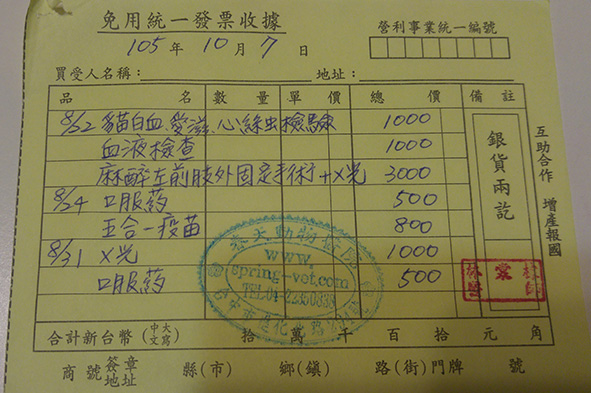 免用統一發票收據
105年10月7日
營利事業統一編號
買受人名稱： 地址：
品名 數量 單價 總價 備註
8/22 貓白血、愛滋、心絲虫檢驗 1000
血液檢查 1000
麻醉左前肢外固定手術+X光 3000
8/24 口服药 500
五合一疫苗 800
8/31 X光 1000
口服药 500
銀貨兩訖
互助合作 增產報國
動物醫院
www.
spring-vet.com
合計新台幣(中文大寫) 拾 萬 千 百 拾 元 角
商號簽章地址 縣(市) 鄉(鎮) 路(街)門牌 號